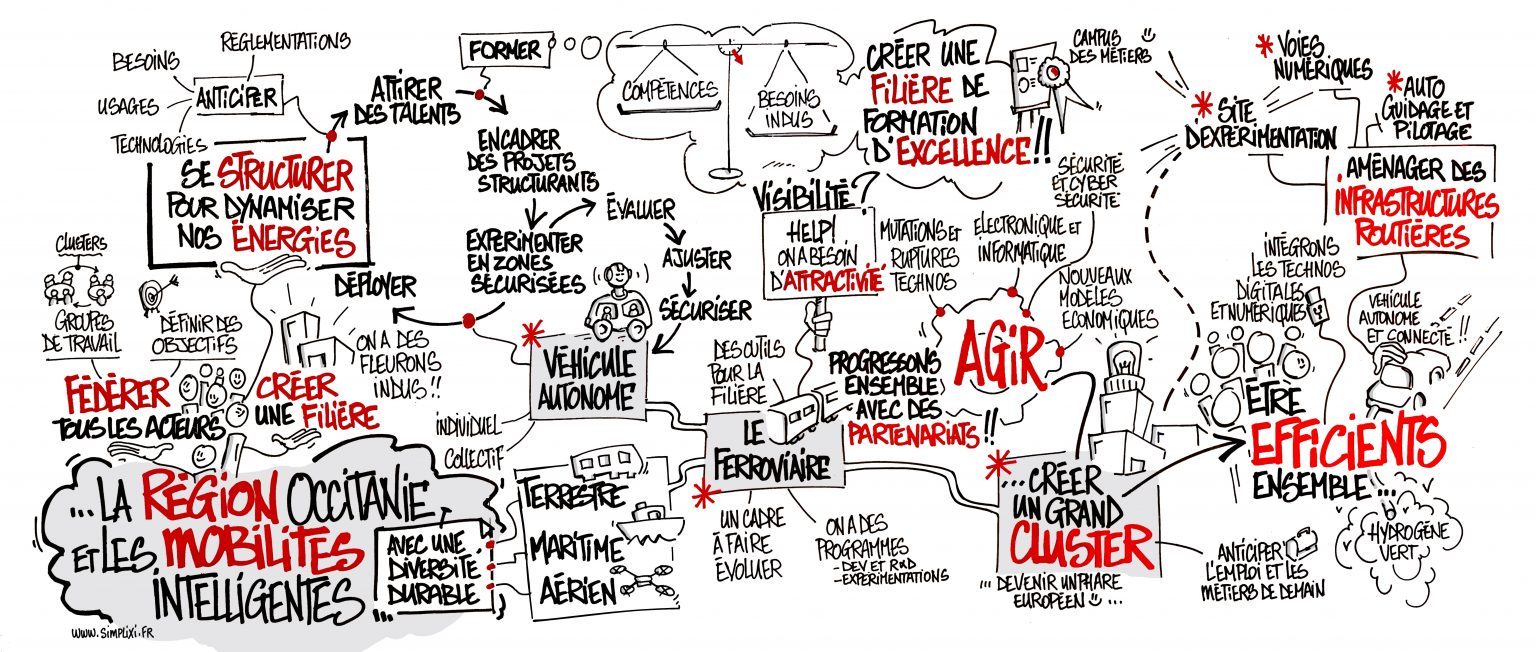 RÉGLEMENTATIONS
BESOINS
USAGES
TECHNOLOGIES
ANTICIPER
SE STRUCTURER
POUR DYNAMISER
NOS ÉNERGIES
ATTIRER
DES TALENTS
FORMER
ENCADRER
DES PROJETS
STRUCTURANTS
EXPÉRIMENTER
EN ZONES
SÉCURISÉES
ÉVALUER
AJUSTER
SÉCURISER
DÉPLOYER
COMPÉTENCES
BESOINS
INDUS
CRÉER UNE
FILIÈRE DE
FORMATION
D'EXCELLENCE!!
VISIBILITÉ?
HELP!
ON A BESOIN
D'ATTRACTIVITÉ
CLUSTERS
GROUPES
DE TRAVAIL
DÉFINIR DES
OBJECTIFS
FÉDÉRER
TOUS LES ACTEURS
CRÉER
UNE FILIÈRE
ON A DES
FLEURONS
INDUS!!
...LA RÉGION OCCITANIE
ET LES MOBILITES
INTELLIGENTES
AVEC UNE
DIVERSITÉ
DURABLE
...
WWW.SIMPLIXI.FR
VÉHICULE
AUTONOME
INDIVIDUEL
COLLECTIF
TERRESTRE
MARITIME
AÉRIEN
DES OUTILS
POUR LA
FILIÈRE
LE
FERROVIAIRE
UN CADRE
À FAIRE
ÉVOLUER
ON A DES
PROGRAMMES
-DEV ET R&D
-EXPÉRIMENTATIONS
PROGRESSONS
ENSEMBLE
AVEC DES
PARTENARIATS!!
AGIR
MUTATIONS ET
RUPTURES
TECHNOS
ELECTRONIQUE ET
INFORMATIQUE
SÉCURITÉ
ET CYBER
SÉCURITÉ
NOUVEAUX
MODÈLES
ECONOMIQUES
...CRÉER
UN GRAND
CLUSTER
...DEVENIR UN PHARE
EUROPÉEN ...
ANTICIPER
L'EMPLOI ET LES
MÉTIERS DE DEMAIN
ÊTRE
EFFICIENTS
ENSEMBLE...
HYDROGÈNE
VERT
INTÉGRONS
LES TECHNOS
DIGITALES
ET NUMÉRIQUES
VEHICULE
AUTONOME
ET CONNECTÉ!!
CAMPUS
DES MÉTIERS
SITE
D'EXPÉRIMENTATION
VOIES
NUMÉRIQUES
AUTO
GUIDAGE ET
PILOTAGE
AMÉNAGER DES
INFRASTRUCTURES
ROUTIÈRES